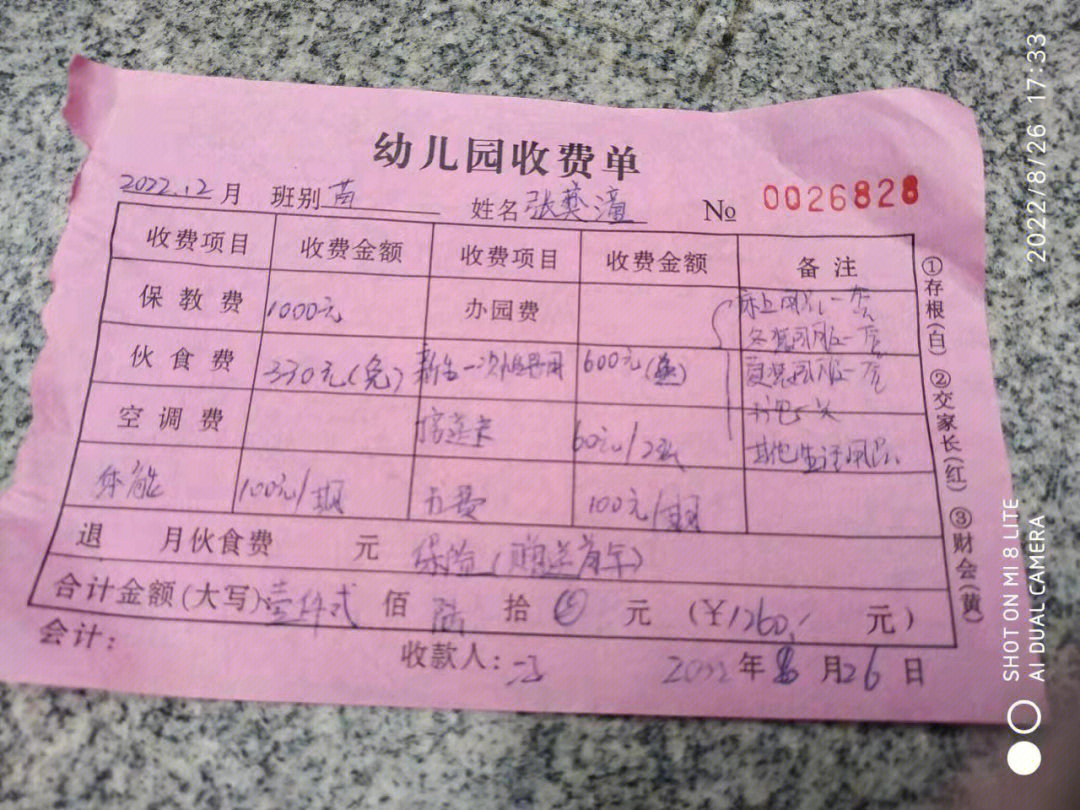 幼儿园收费单
2022.12月 班别 苗 姓名 张 潼 № 0026828
收费项目 收费金额 收费项目 收费金额 备注
保教费 1000元 办园费 床上用品一套
冬装园服一套
伙食费 330元(免) 新生一次性费用 600元(免) 夏装园服一套
书包一个
空调费 接送卡 60元/2张 其他生活用品
体能 100元/期 书费 100元/期
退 月伙食费 元 保险(赠送首年)
合计金额(大写) 壹仟贰 佰 陆 拾 元 (¥1260.- 元)
会计: 收款人: 2022年8月26日
①存根(白) ②交家长(红) ③财会(黄)
2022/8/26 17:33
SHOT ON MI 8 LITE
AI DUAL CAMERA